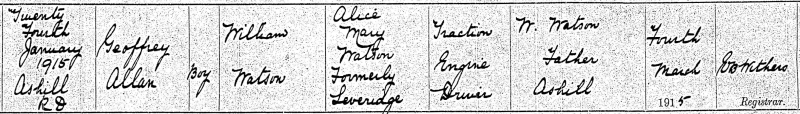 Twenty
Fourth
January
1915
Ashill
R D
Geoffrey
Allan
Boy
William
Watson
Alice
Mary
Watson
Formerly
Leveridge
Traction
Engine
Driver
W. Watson
Father
Ashill
Fourth
March
1915
Registrar.